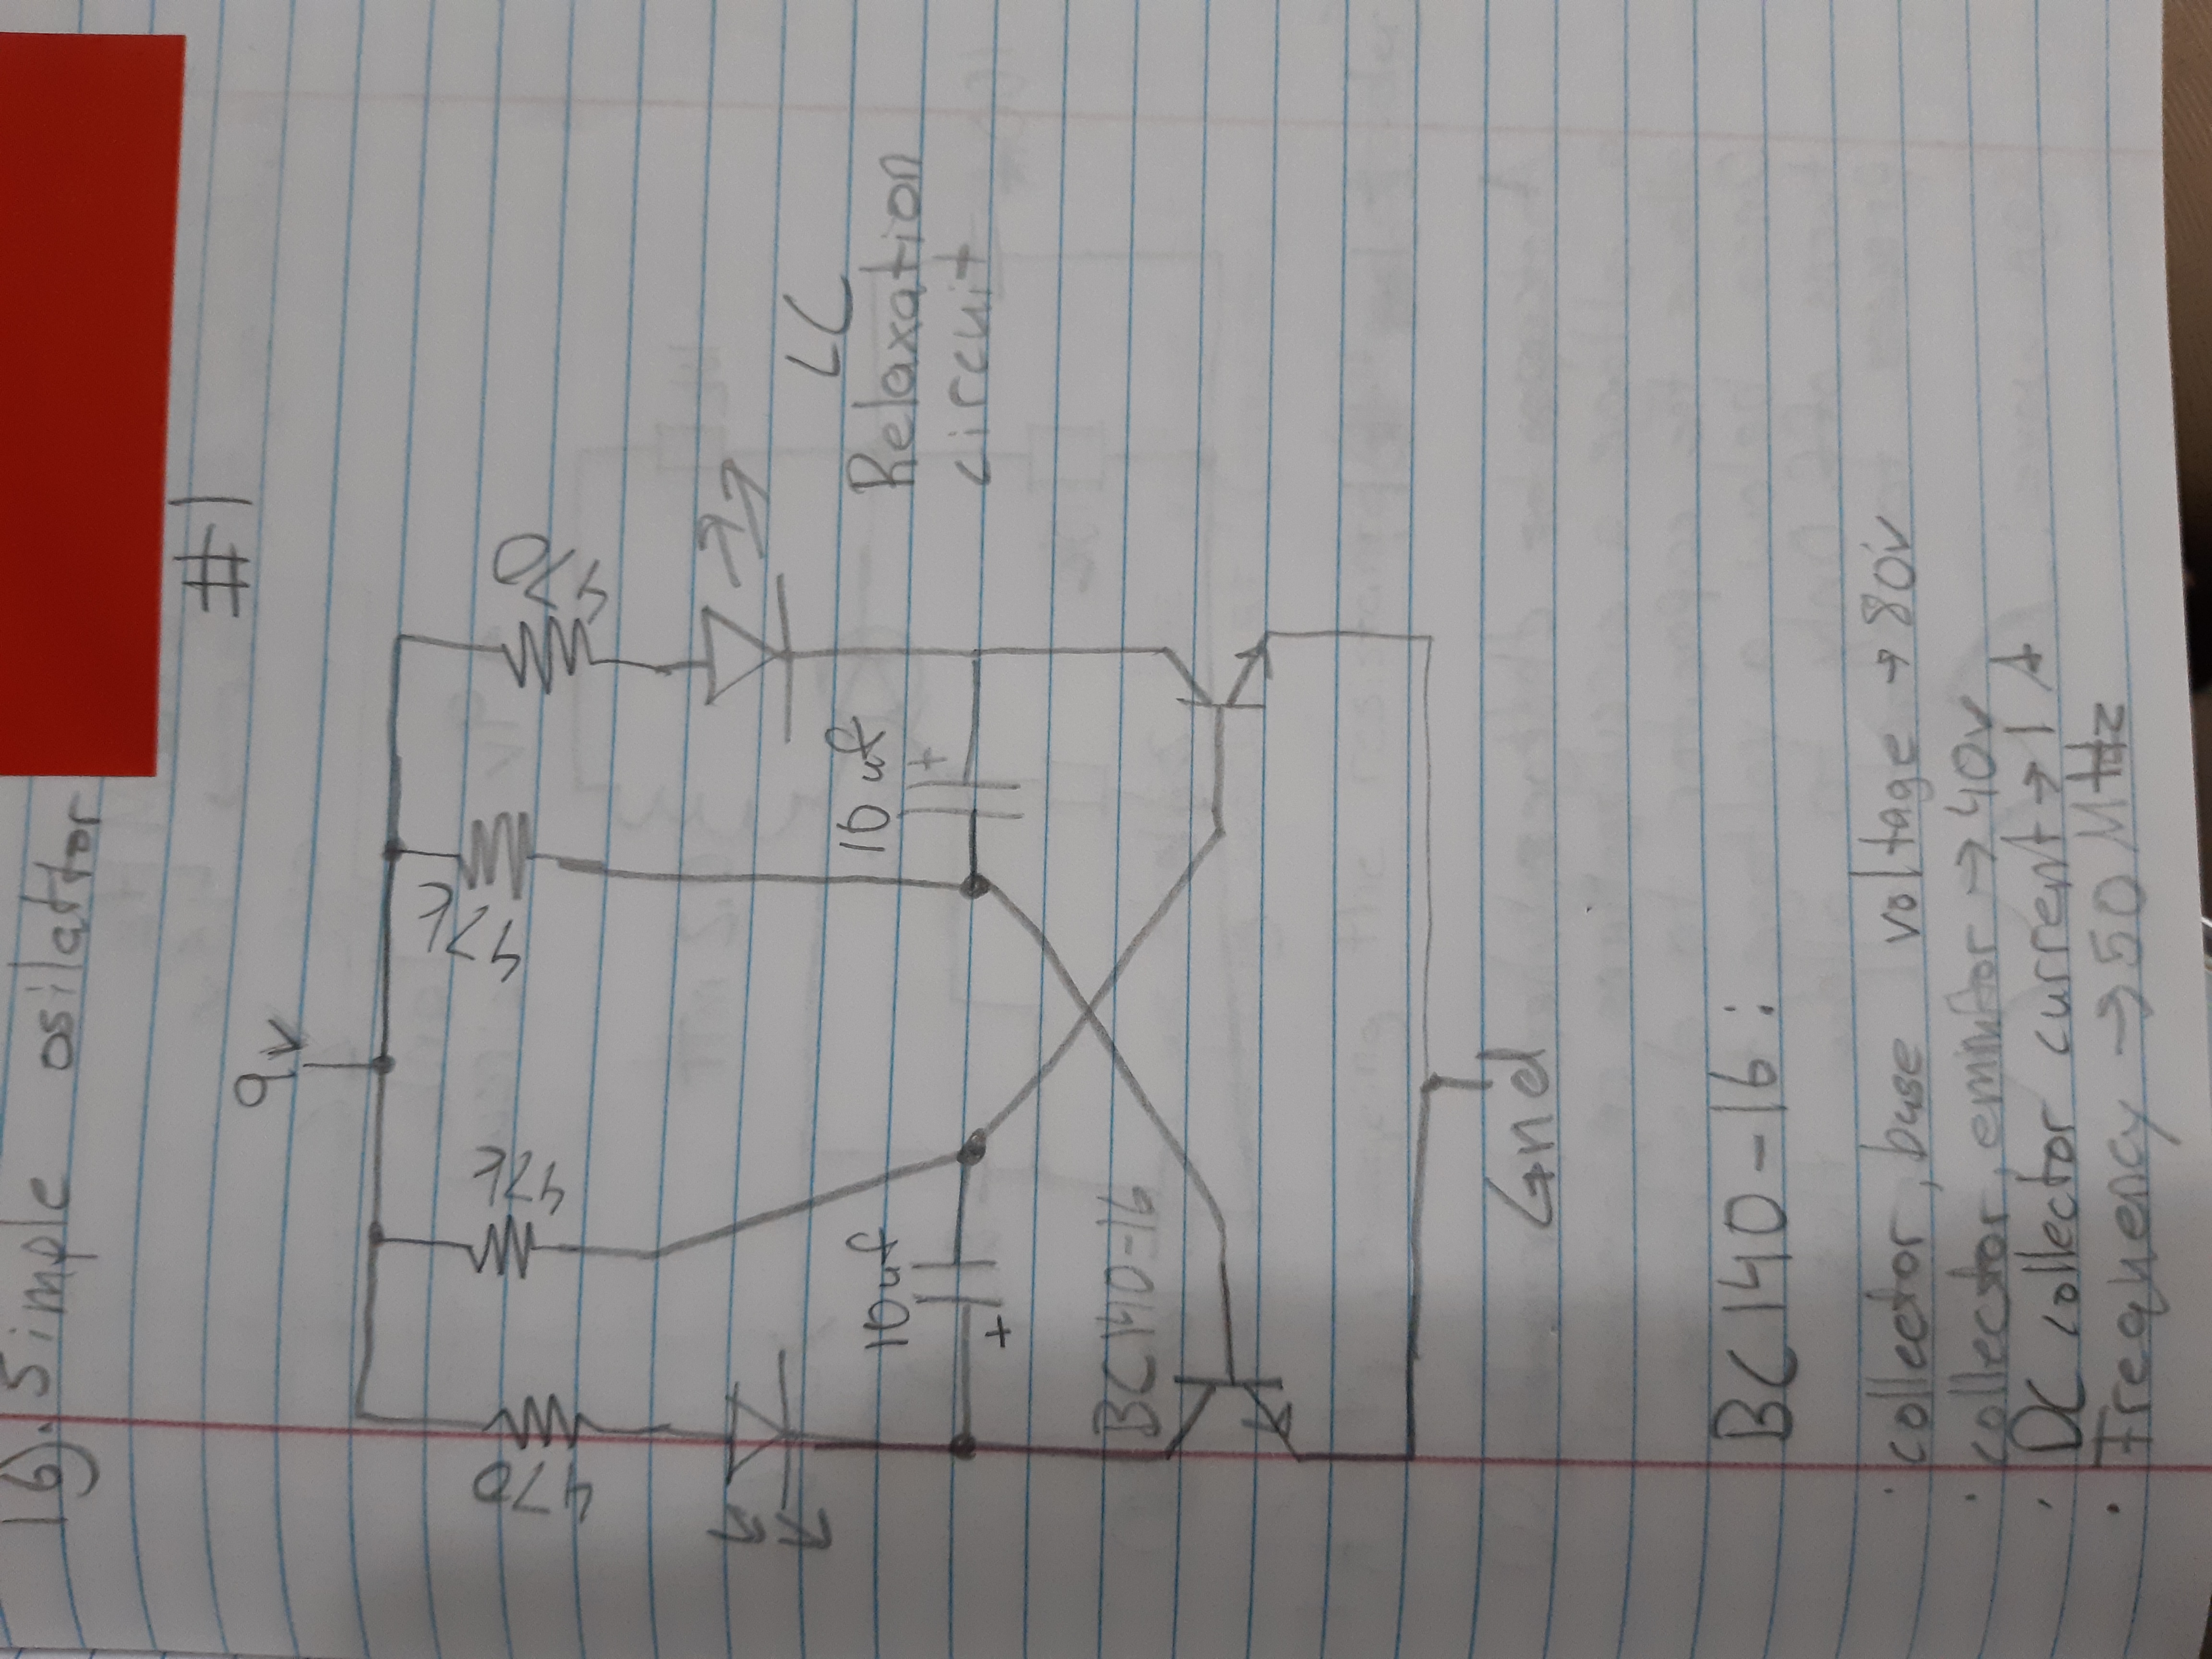 16). Simple osilattor
#1
9v
470
47k
47k
470
10uf
10uf
+
+
LC
Relaxation
circuit
BC140-16
Gnd
BC140-16:
· collector, base voltage → 80v
· collector, emmitor → 40v
· DC collector current → 1 A
· Frequency → 50 MHz